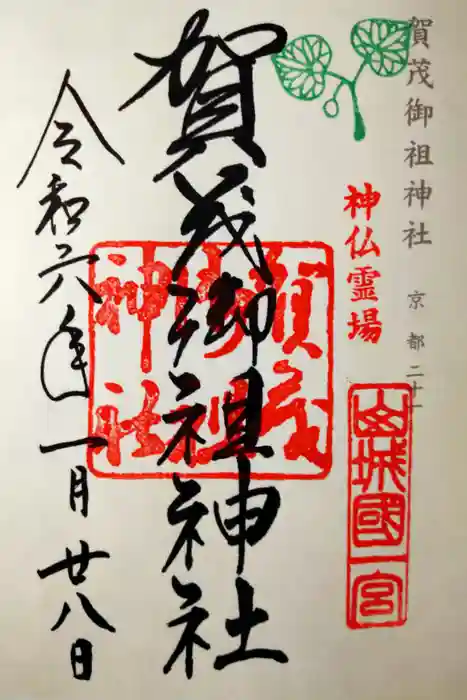 賀茂御祖神社 京都二十一
神仏霊場
山城國一宮
賀茂御祖神社
賀茂御祖神社
令和六年一月廿八日